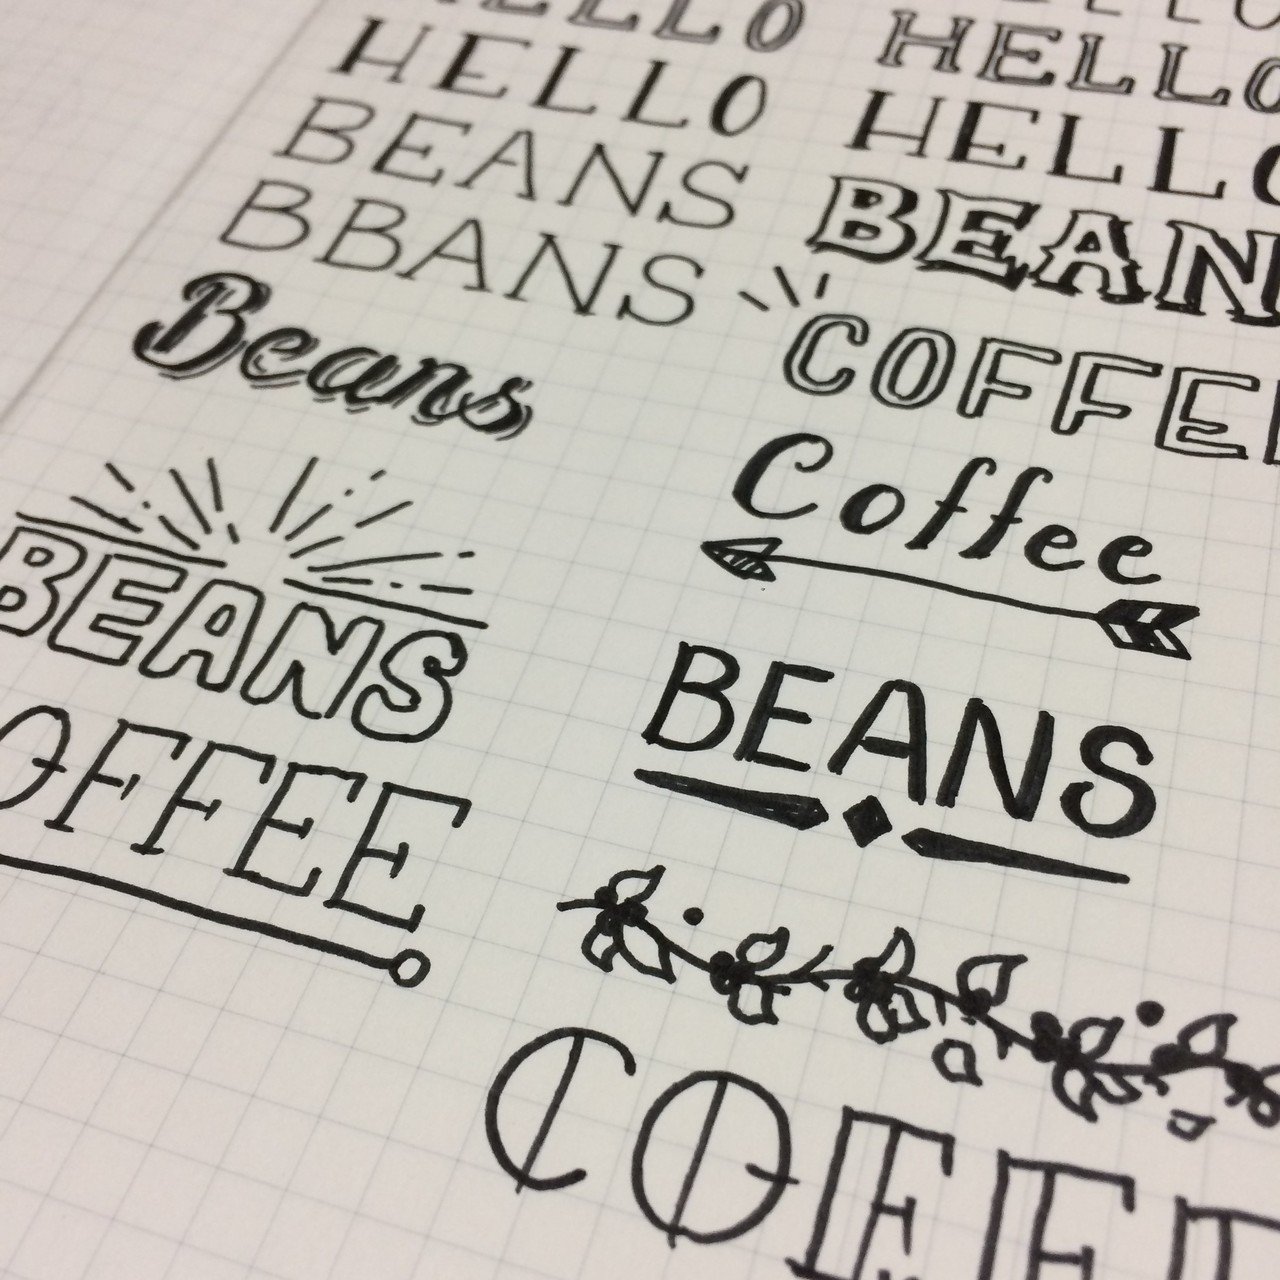 HELLO
HELLO
BEANS
BBANS
Beans
BEANS
OFFEE
HELLO
HELLO
BEAN
COFFE
Coffee
BEANS
COFF